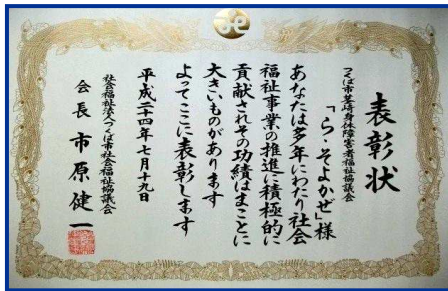 表彰状
つくば市茎崎身体障害者福祉協議会
「ら・そよかぜ」様
あなたは多年にわたり社会
福祉事業の推進に積極的に
貢献されその功績はまことに
大きいものがあります
よってここに表彰します
平成二十四年七月十九日
社会福祉法人つくば市社会福祉協議会
会長 市原健一